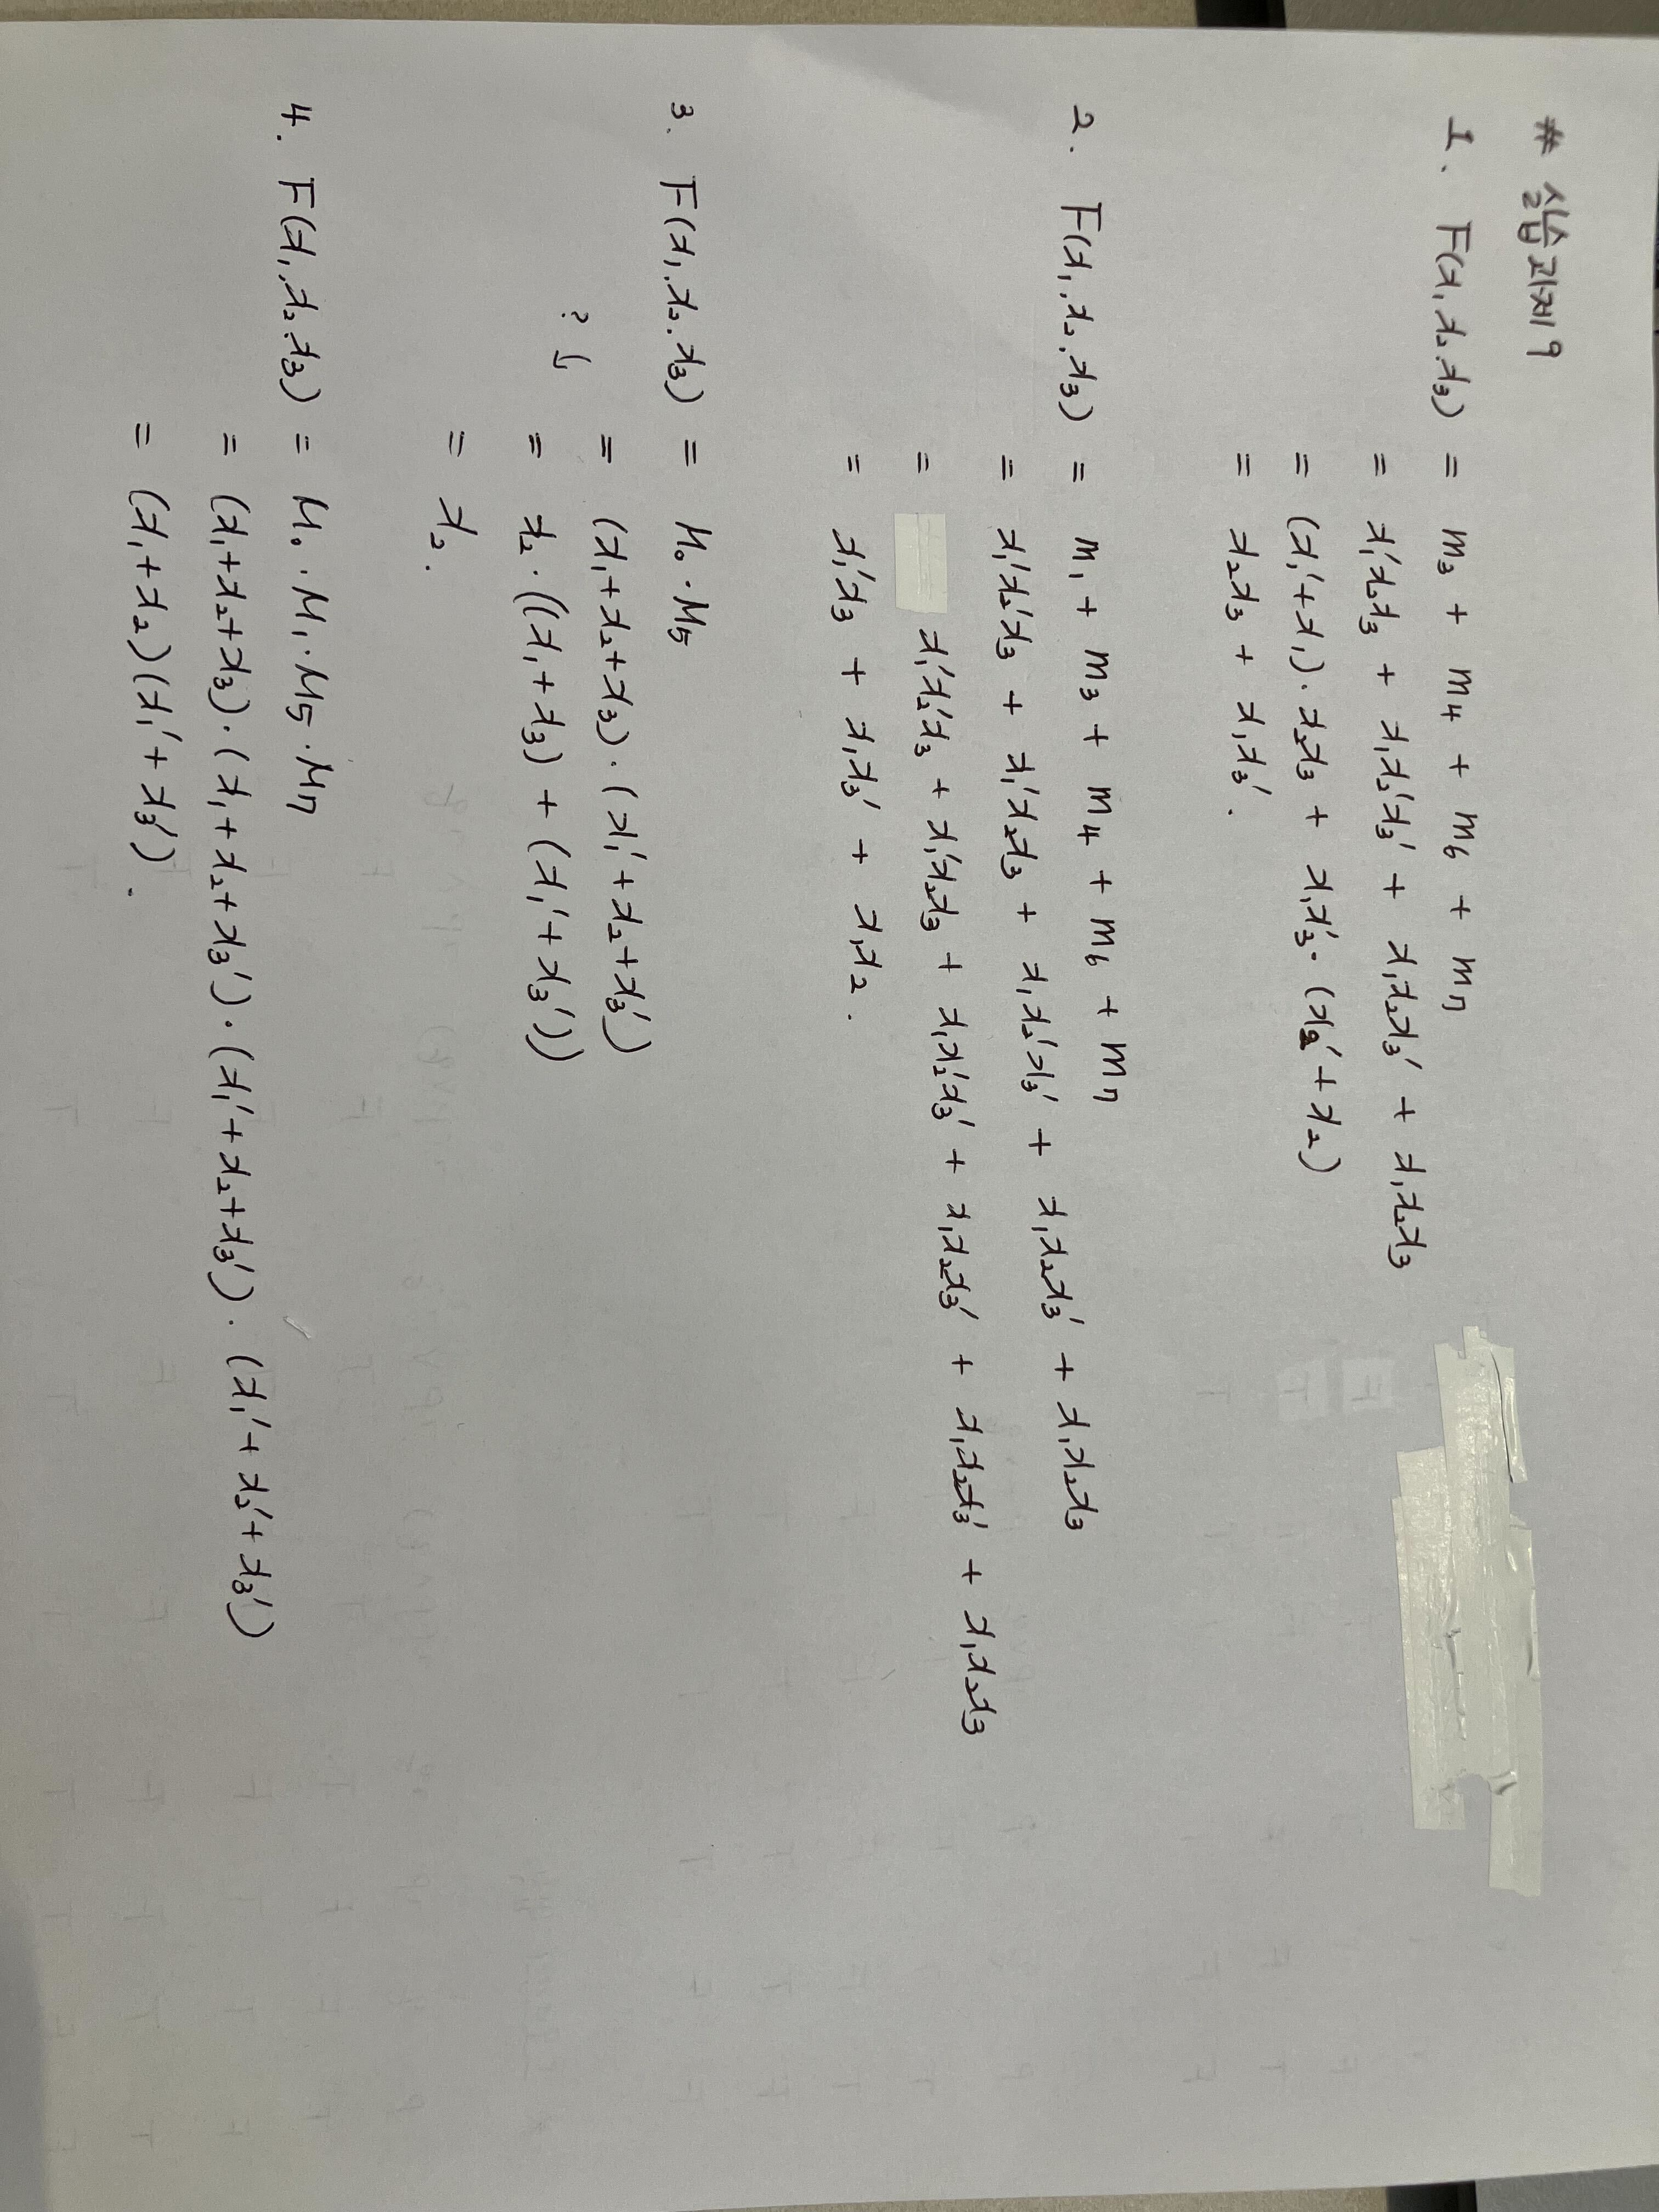 # 실습과제 9
1. F(x₁,x₂,x₃) = m₃ + m₄ + m₆ + m₇
= x₁'x₂x₃ + x₁x₂'x₃' + x₁x₂x₃' + x₁x₂x₃
= (x₁'+x₁)·x₂x₃ + x₁x₃'·(x₂'+x₂)
= x₂x₃ + x₁x₃'.
2. F(x₁,x₂,x₃) = m₁ + m₃ + m₄ + m₆ + m₇
= x₁'x₂'x₃ + x₁'x₂x₃ + x₁x₂'x₃' + x₁x₂x₃' + x₁x₂x₃
= x₁'x₂'x₃ + x₁'x₂x₃ + x₁x₂'x₃' + x₁x₂x₃' + x₁x₂x₃' + x₁x₂x₃
= x₁'x₃ + x₁x₃' + x₁x₂.
3. F(x₁,x₂,x₃) = M₀·M₅
= (x₁+x₂+x₃)·(x₁'+x₂+x₃')
? ↓
= x₂·((x₁+x₃) + (x₁'+x₃'))
= x₂.
4. F(x₁,x₂,x₃) = M₀·M₁·M₅·M₇
= (x₁+x₂+x₃)·(x₁+x₂+x₃')·(x₁'+x₂+x₃')·(x₁'+x₂'+x₃')
= (x₁+x₂)(x₁'+x₃').